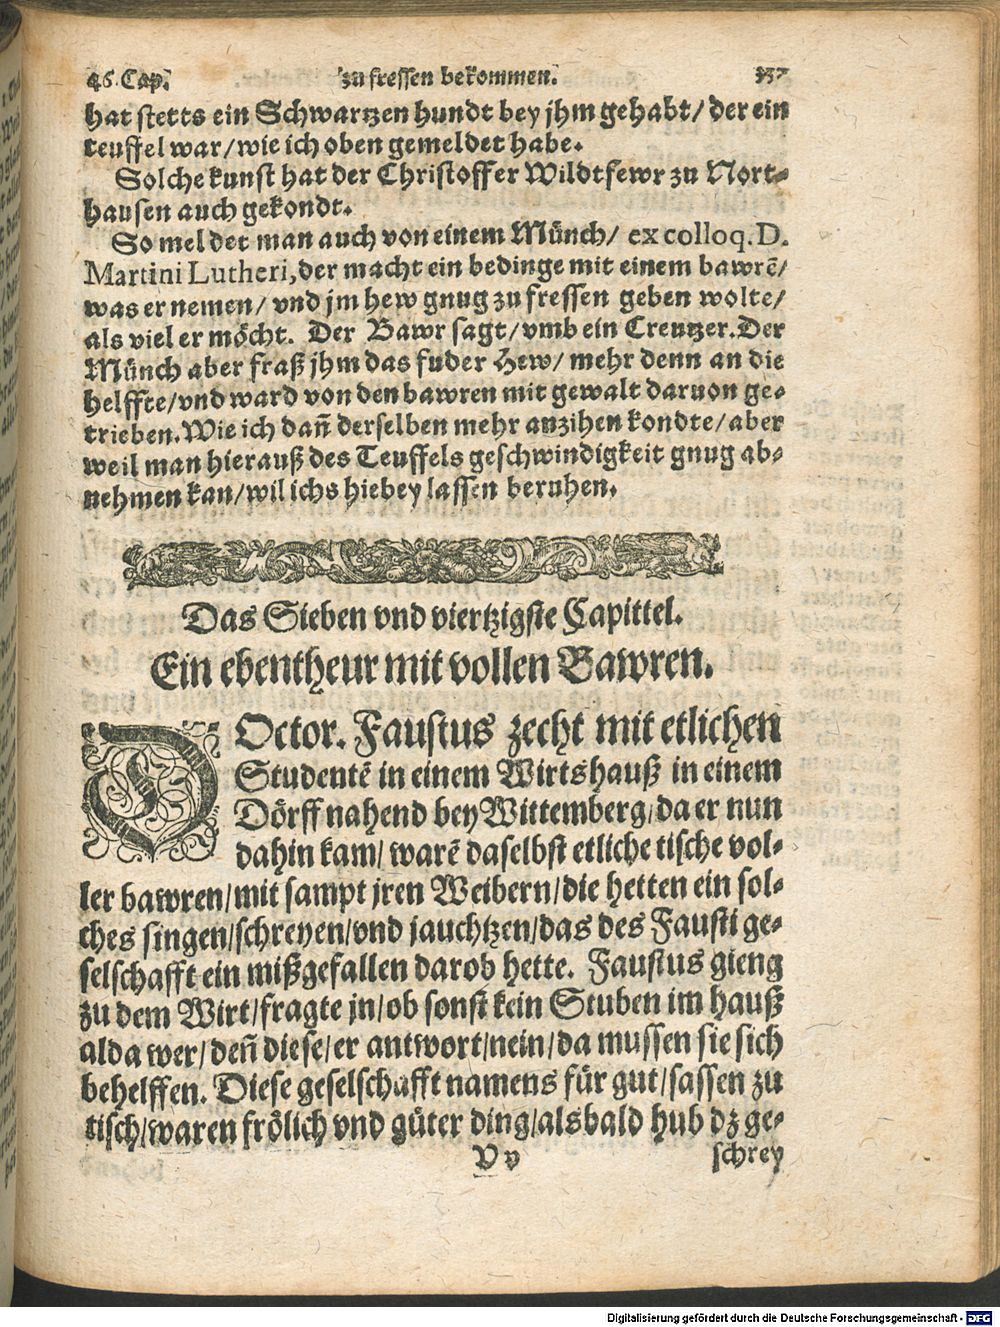 46. Cap. zu fressen bekommen. 337
hat stetts ein Schwartzen hundt bey jhm gehabt/ der ein
teuffel war/ wie ich oben gemeldet habe.
Solche kunst hat der Christoffer Wildtfewr zu Nort-
hausen auch gekondt.
So meldet man auch von einem Münch/ ex colloq. D.
Martini Lutheri, der macht ein bedinge mit einem bawrē/
was er nemen/ vnd jm hew gnug zu fressen geben wolte/
als viel er möcht. Der Bawr sagt/ vmb ein Creutzer. Der
Münch aber fraß jhm das fuder Hew/ mehr denn an die
helffte/ vnd ward von den bawren mit gewalt daruon ge-
trieben. Wie ich dañ derselben mehr anzihen kondte/ aber
weil man hierauß des Teuffels geschwindigkeit gnug ab-
nehmen kan/ wil ichs hiebey lassen beruhen.
Das Sieben vnd viertzigste Capittel.
Ein ebentheur mit vollen Bawren.
DOctor. Faustus zecht mit etlichen
Studentē in einem Wirtshauß in einem
Dörff nahend bey Wittemberg/ da er nun
dahin kam/ warē daselbst etliche tische vol-
ler bawren/ mit sampt jren Weibern/ die hetten ein sol-
ches singen/ schreyen/ vnd jauchtzen/ das des Fausti ge-
selschafft ein mißgefallen darob hette. Faustus gieng
zu dem Wirt/ fragte jn/ ob sonst kein Stuben im hauß
alda wer/ deñ diese/ er antwort/ nein/ da mussen sie sich
behelffen. Diese geselschafft namens für gut/ sassen zu
tisch/ waren frölich vnd güter ding/ alsbald hub dz ge-
V v schrey
Digitalisierung gefördert durch die Deutsche Forschungsgemeinschaft - DFG